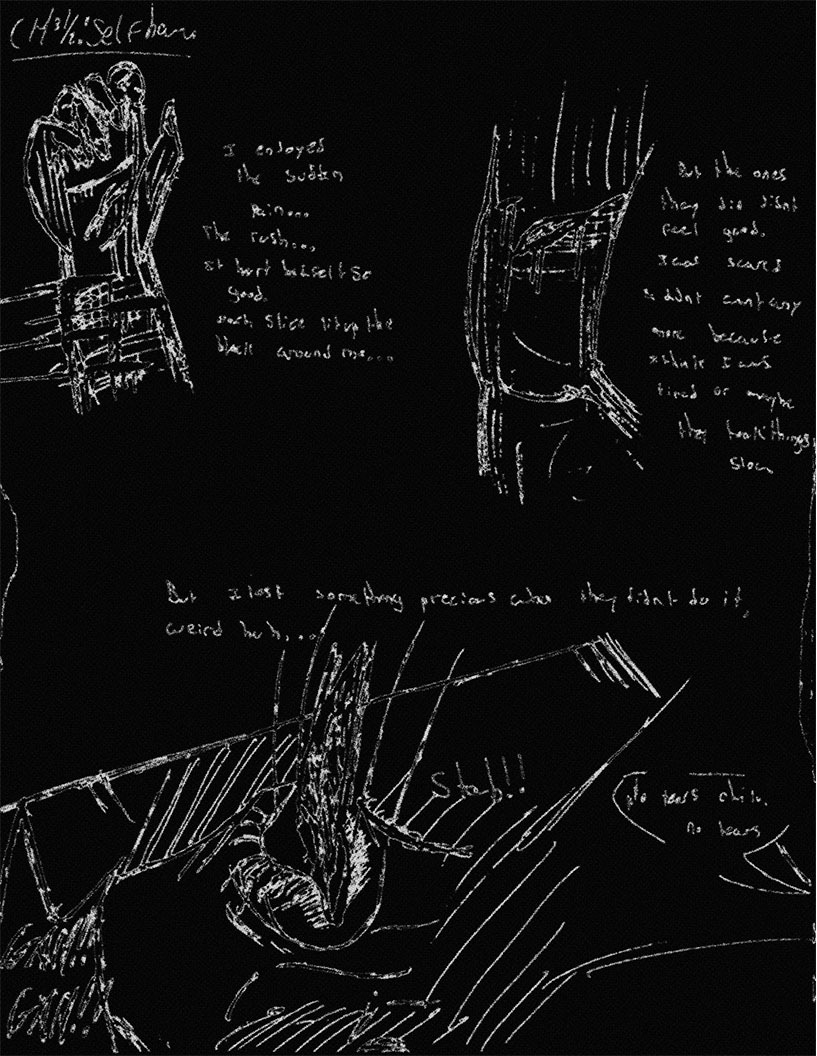 CH 3 1/2: Self harm
I enjoyed
the sudden
pain...
The rush...
it hurt but felt so
good.
each slice lit up the
black around me...
But the ones
they did didnt
feel good.
I was scared
I didnt cont any
more because
I think I was
tired or maybe
they took things
slow.
But I lost something precious when they didnt do it,
weird huh...
Stab!!
No tears child.
no tears
GAH!!
GAH!!